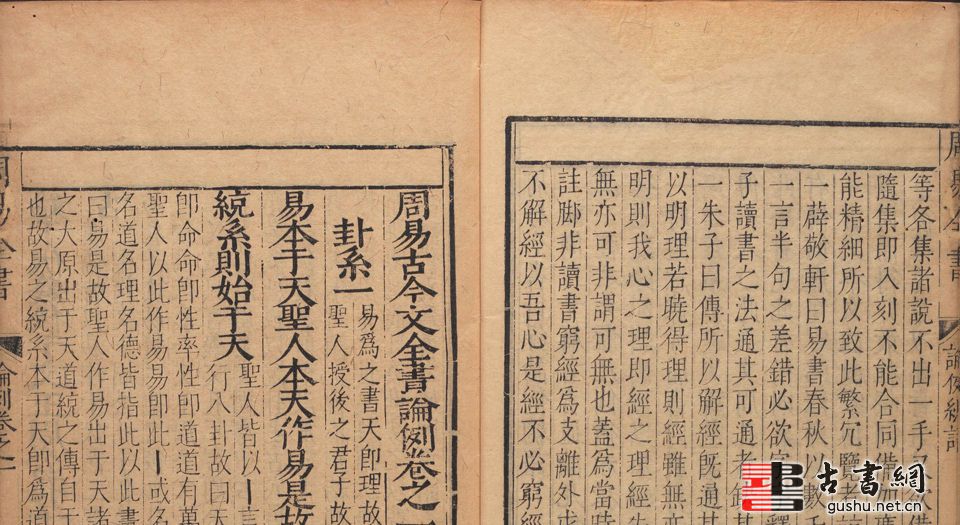 等各集諸說不出一手
隨集即入刻不能合同備
能精細所以致此繁冗覽者
一薛敬軒曰易書春秋以數
一言半句之差錯必欲
子讀書之法通其可通者
一朱子曰傳所以解經既通其
以明理若曉得理則經雖無
明則我心之理即經之理
無亦可非謂可無也蓋為當時
註脚非讀書窮經為支離外
不解經以吾心是經不必窮經
周易全書
論例
周易古今文全書論例卷之一
卦系一
易為之書天即理故
聖人授後之君子故
易本于天聖人本天作易是故
統系則始于天
聖人皆以
行八卦故曰天
即命命即性率性即道道有萬
聖人以此作易易即此一或名
名道名理名德皆指此以
曰易是故聖人作易出于天諸
之大原出于天道統之傳自于
也故易之統系本于天即為道
周易全書
論例卷之一
古書網
gushu.net.cn